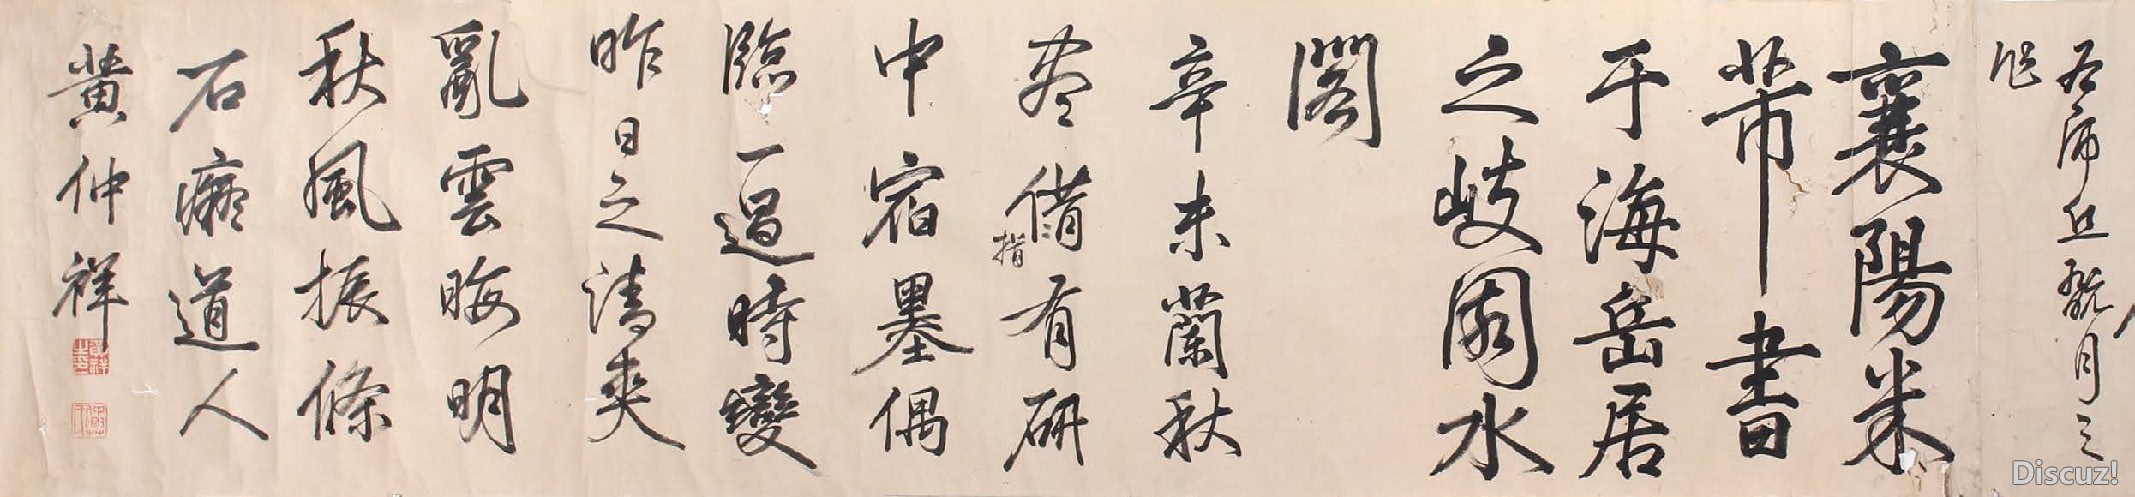 襄陽米
芾書
于海岳居
之歧園水
閣
辛未蘭秋
盡備有研
指
中宿墨偶
臨一過時變
昨日之清爽
亂雲晦明
秋風振條
石癡道人
黃仲祥
Discuz!